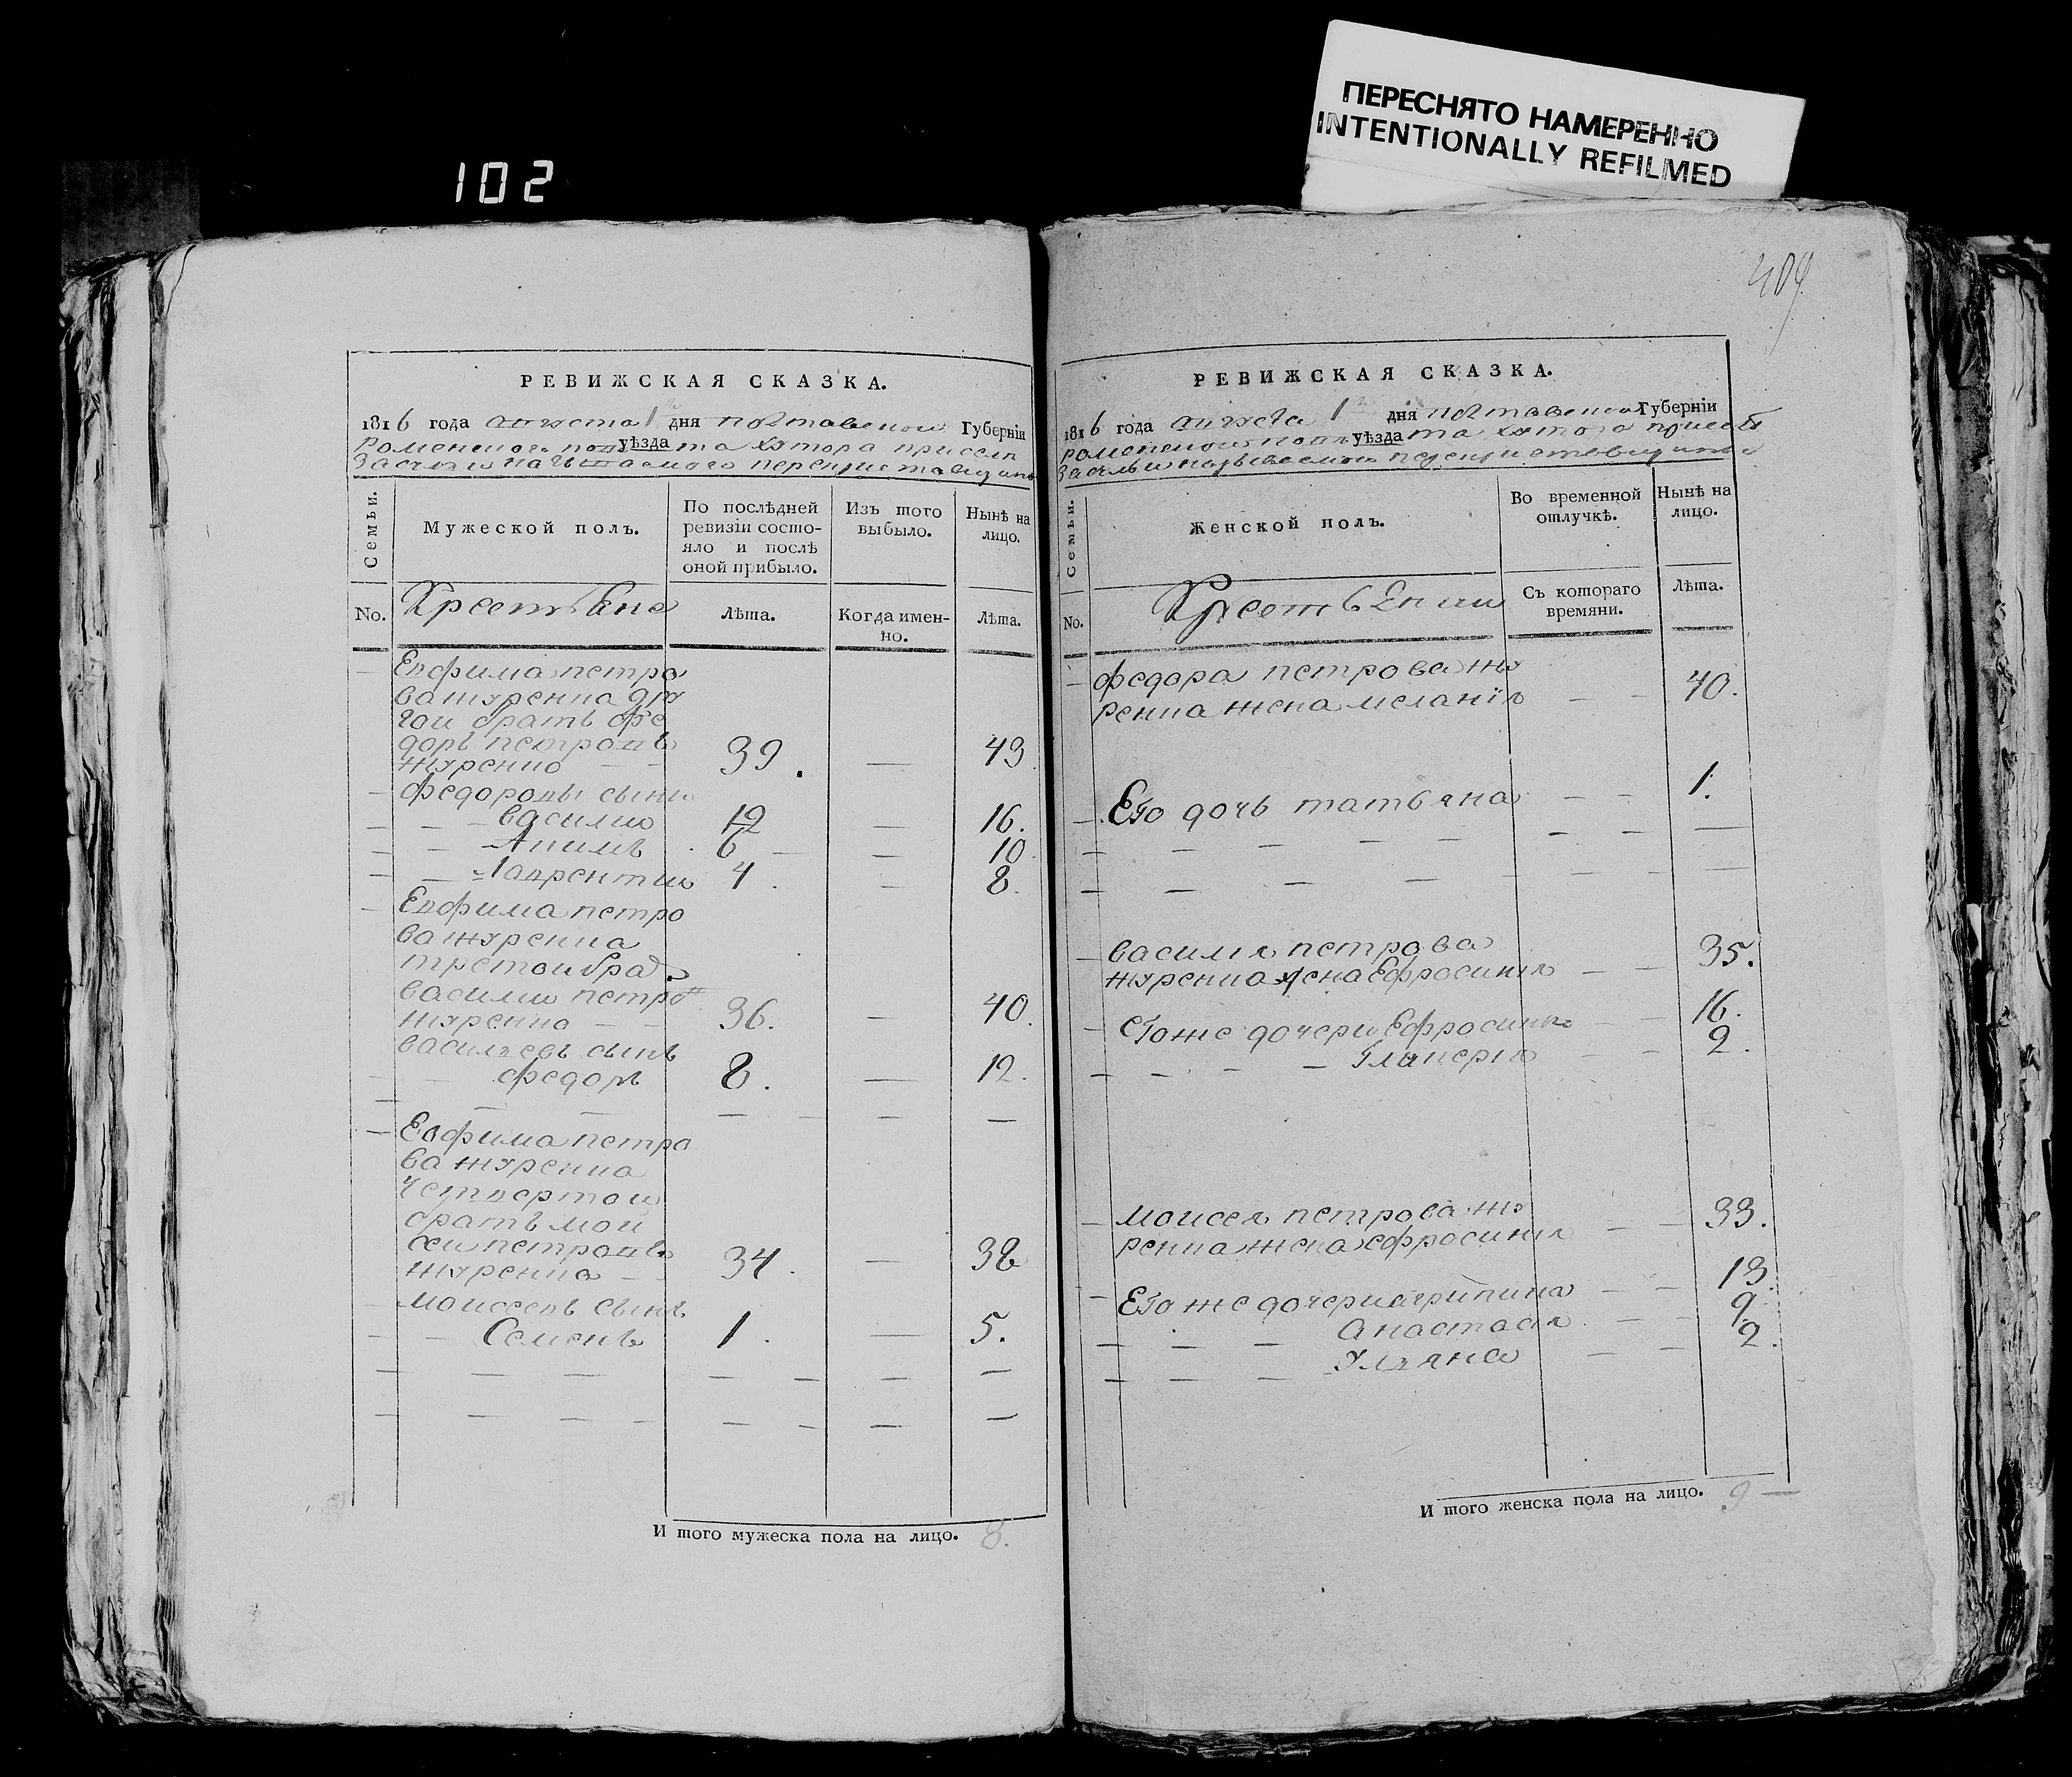 ПЕРЕСНЯТО НАМЕРЕННО
INTENTIONALLY REFILMED
102
404
РЕВИЖСКАЯ СКАЗКА.
1816 года августа 1 дня полтавской Губерніи
роменского повѣта уѣзда хутора присели
Мужеской полъ.
Семьи.
По послѣдней
ревизіи состо-
яло и послѣ
оной прибыло.
Изъ того
выбыло.
Нынѣ на
лицо.
No.
Крестьяне
Лѣта.
Когда имен-
но.
Лѣта.
Евфима петро
ва журенка дру
гой братъ фе
доръ петровъ
журенко 39. — 43
федоровы сыны
василий 12 — 16.
Акимъ 6 — 10
Лаврентий 4 — 8.
Евфима петро
ва журенка
третой братъ
василий петровъ
журенко 36. — 40.
василевъ сынъ
федоръ 8. — 12.
Евфима петро
ва журенка
четвертой
братъ мой
сей петровъ
журенка 34. — 38
моисеевъ сынъ
Семенъ 1. — 5.
И того мужеска пола на лицо. 8.
РЕВИЖСКАЯ СКАЗКА.
1816 года августа 1 дня полтавской Губерніи
роменского уѣзда хутора
Семьи.
Женской полъ.
Во временной
отлучкѣ.
Нынѣ на
лицо.
No.
Крестьянки
Съ котораго
времяни.
Лѣта.
федора петрова жу
ренка жена меланія — — 40.
Его дочь татьяна — — 1.
василя петрова
журенка жена Ефросиния — — 35.
Егоже дочери Ефросиня — — 16.
Гликерия — — 2.
моисея петрова жу
ренка жена ефросиния — — 33.
Егоже дочери агрипина — — 13.
анастасия — — 9.
уляна — — 2.
И того женска пола на лицо. 9 —